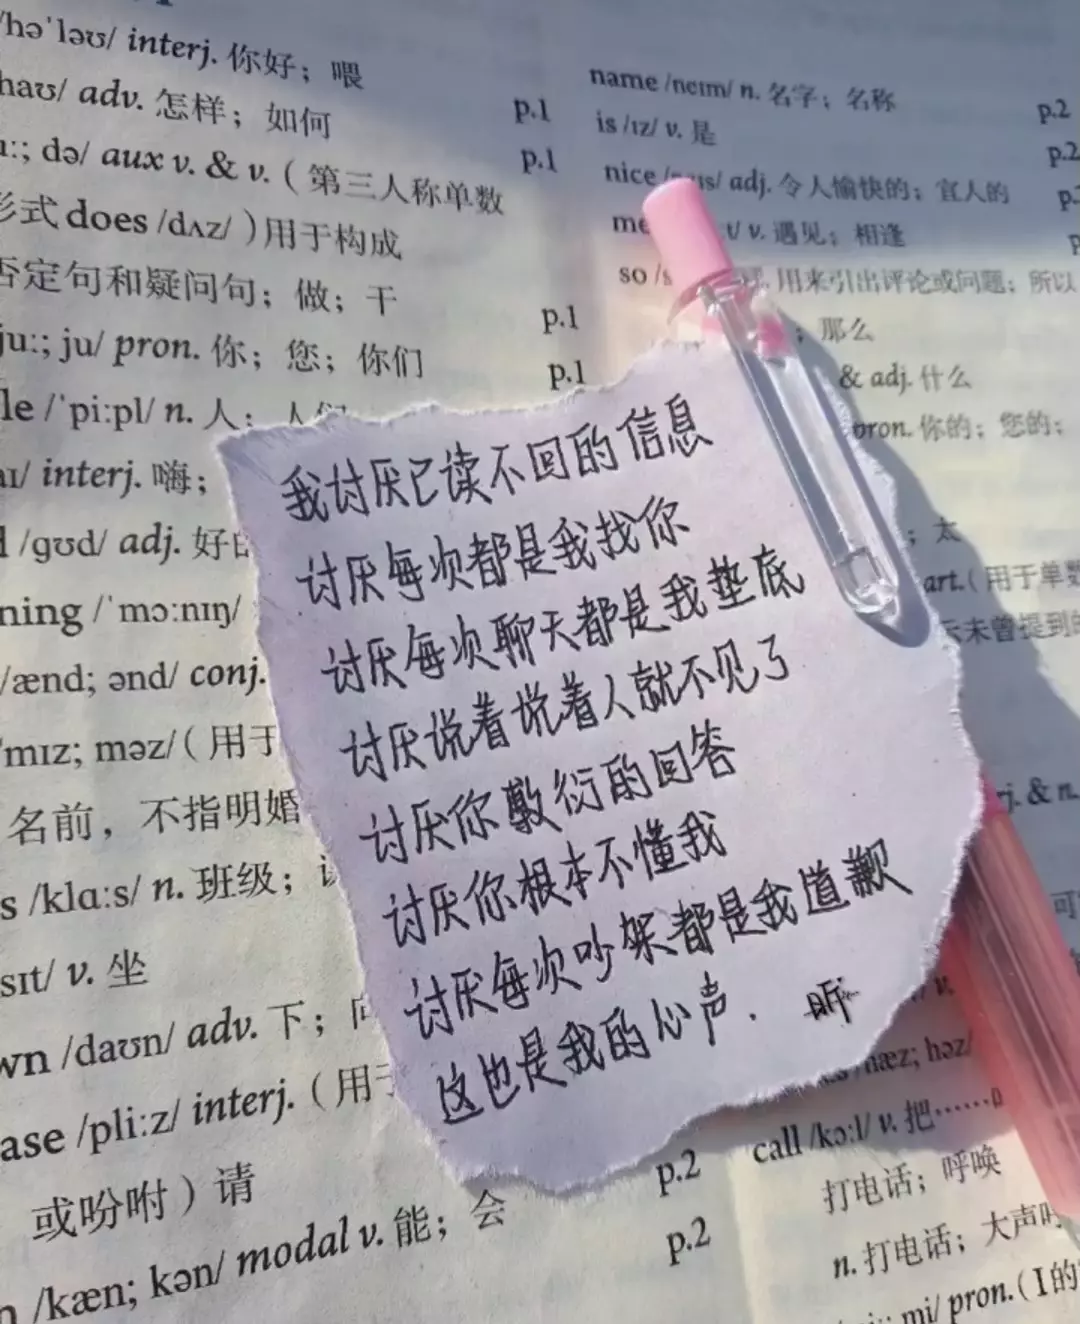 /həˈləʊ/ interj. 你好；喂
haʊ/ adv. 怎样；如何
p.1
də/ aux v. & v.（第三人称单数
p.1
形式 does /dʌz/ ）用于构成
否定句和疑问句；做；干
p.1
juː; ju/ pron. 你；您；你们
p.1
/ˈpiːpl/ n. 人；人们
interj. 嗨；
/ɡʊd/ adj. 好的
ning /ˈmɔːnɪŋ/
/ænd; ənd/ conj.
mɪz; məz/（用于
名前，不指明婚
s /klɑːs/ n. 班级；
sɪt/ v. 坐
wn /daʊn/ adv. 下；向
ase /pliːz/ interj.（用于
或吩咐）请
p.2
n /kæn; kən/ modal v. 能；会
p.2
name /neɪm/ n. 名字；名称
p.2
is /ɪz/ v. 是
p.2
nice adj. 令人愉快的；宜人的
v. 遇见；相逢
so 用来引出评论或问题；所以
；那么
& adj. 什么
pron. 你的；您的；
；太
art.（用于单数
未曾提到的
& n.
可
/hæz; həz/
call /kɔːl/ v. 把……叫
打电话；呼唤
n. 打电话；大声叫
mi/ pron.（I的
我讨厌已读不回的信息
讨厌每次都是我找你
讨厌每次聊天都是我垫底
讨厌说着说着人就不见了
讨厌你敷衍的回答
讨厌你根本不懂我
讨厌每次吵架都是我道歉
这也是我的心声. 昕